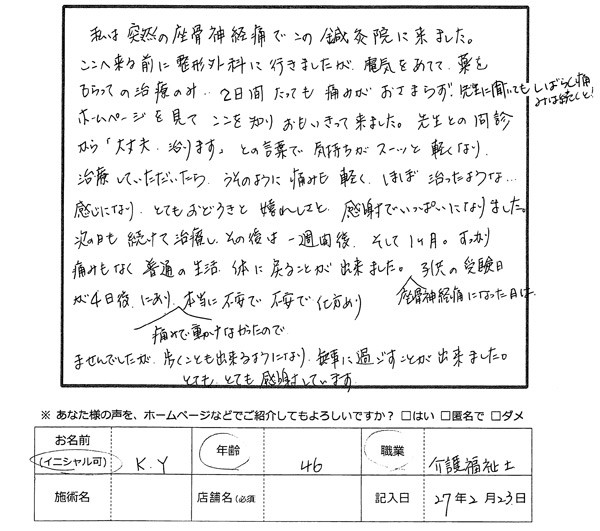 私は突然の座骨神経痛でこの鍼灸院に来ました。
ここへ来る前に整形外科に行きましたが、電気をあてて、薬を
もらっての治療のみ‥2日間たっても痛みがおさまらず!先生に聞いてもしばらく痛みは続くと!
ホームページを見てここを知りおもいきって来ました。先生との問診
から「大丈夫、治ります」との言葉で気持ちがスーッと軽くなり、
治療していただいたら、うそのように痛みも軽く、ほぼ治ったような…
感じになり、とてもおどろきと嬉れしさと、感謝でいっぱいになりました。
次の日も続けて治療し、その後は一週間後、そして1ヶ月。すっかり
痛みもなく普通の生活、体に戻ることが出来ました。子供の受験日
が4日後にあり、本当に不安で不安で仕方あり
座骨神経痛になった日は、
痛みで動けなかったので
ませんでしたが、歩くことも出来るようになり、無事に過ごすことが出来ました。
とても、とても感謝しています。
※ あなた様の声を、ホームページなどでご紹介してもよろしいですか? □はい □匿名で □ダメ
お名前 (イニシャル可) K.Y 年齢 46 職業 介護福祉士
施術名 店舗名(必須 記入日 27年2月23日